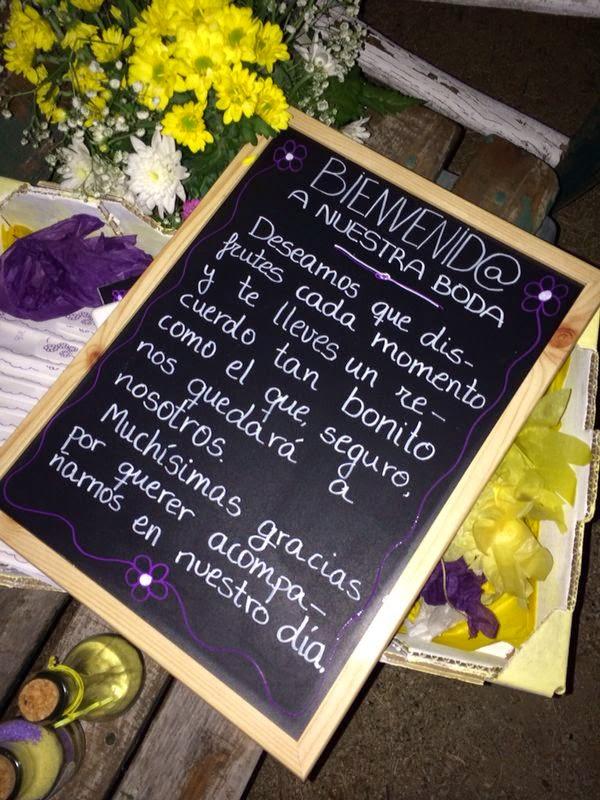 BIENVENID@
A NUESTRA BODA
Deseamos que dis-
frutes cada momento
y te lleves un re-
cuerdo tan bonito
como el que, seguro,
nos quedará a
nosotros.
Muchísimas gracias
por querer acompa-
ñarnos en nuestro día.